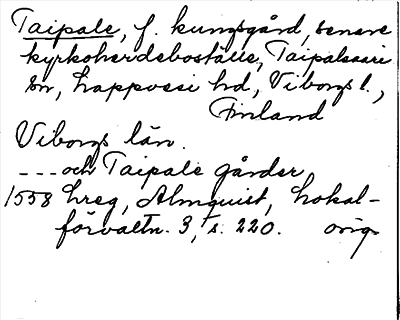 Taipale, f. kungsgård, senare
kyrkoherdeboställe, Taipalsaari
sn, Lappvesi hd, Viborgs l.,
Finland
Viborgs län.
--- och Taipale gårder
1558 hreg, Almquist, Lokal-
förvaltn. 3, s. 220. orig.